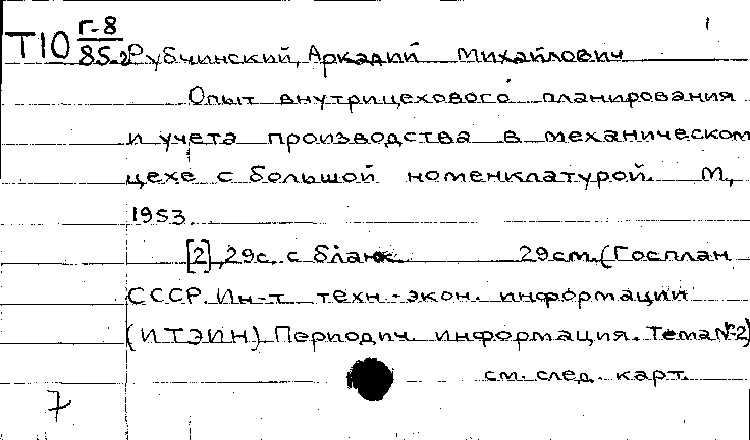 1
Т10 Г-8/85-2 Рубчинский, Аркадий Михайлович
Опыт внутрицехового планирования
и учета производства в механическом
цехе с большой номенклатурой. М.,
1953.
[2], 29с. с бланк. 29см. (Госплан
СССР. Ин-т техн.-экон. информации
(ИТЭИН). Периодич. информация. Тема №2)
см. след. карт.
7